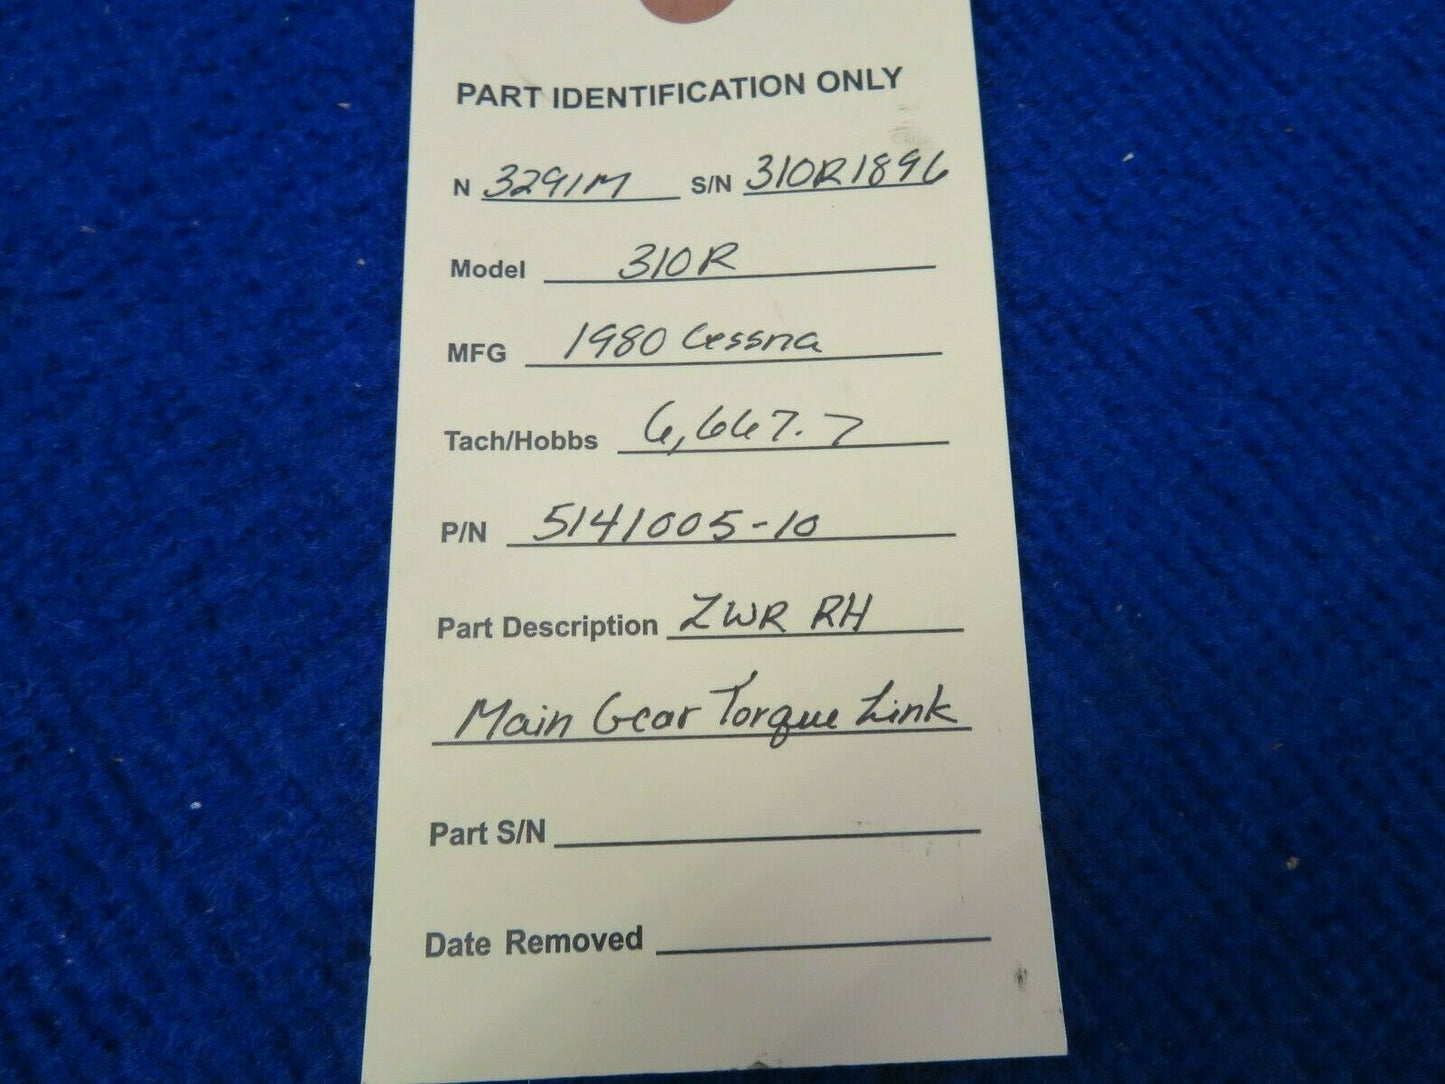 PART IDENTIFICATION ONLY
N 3291M S/N 310R1896
Model 310R
MFG 1980 Cessna
Tach/Hobbs 6,667.7
P/N 5141005-10
Part Description LWR RH
Main Gear Torque Link
Part S/N
Date Removed